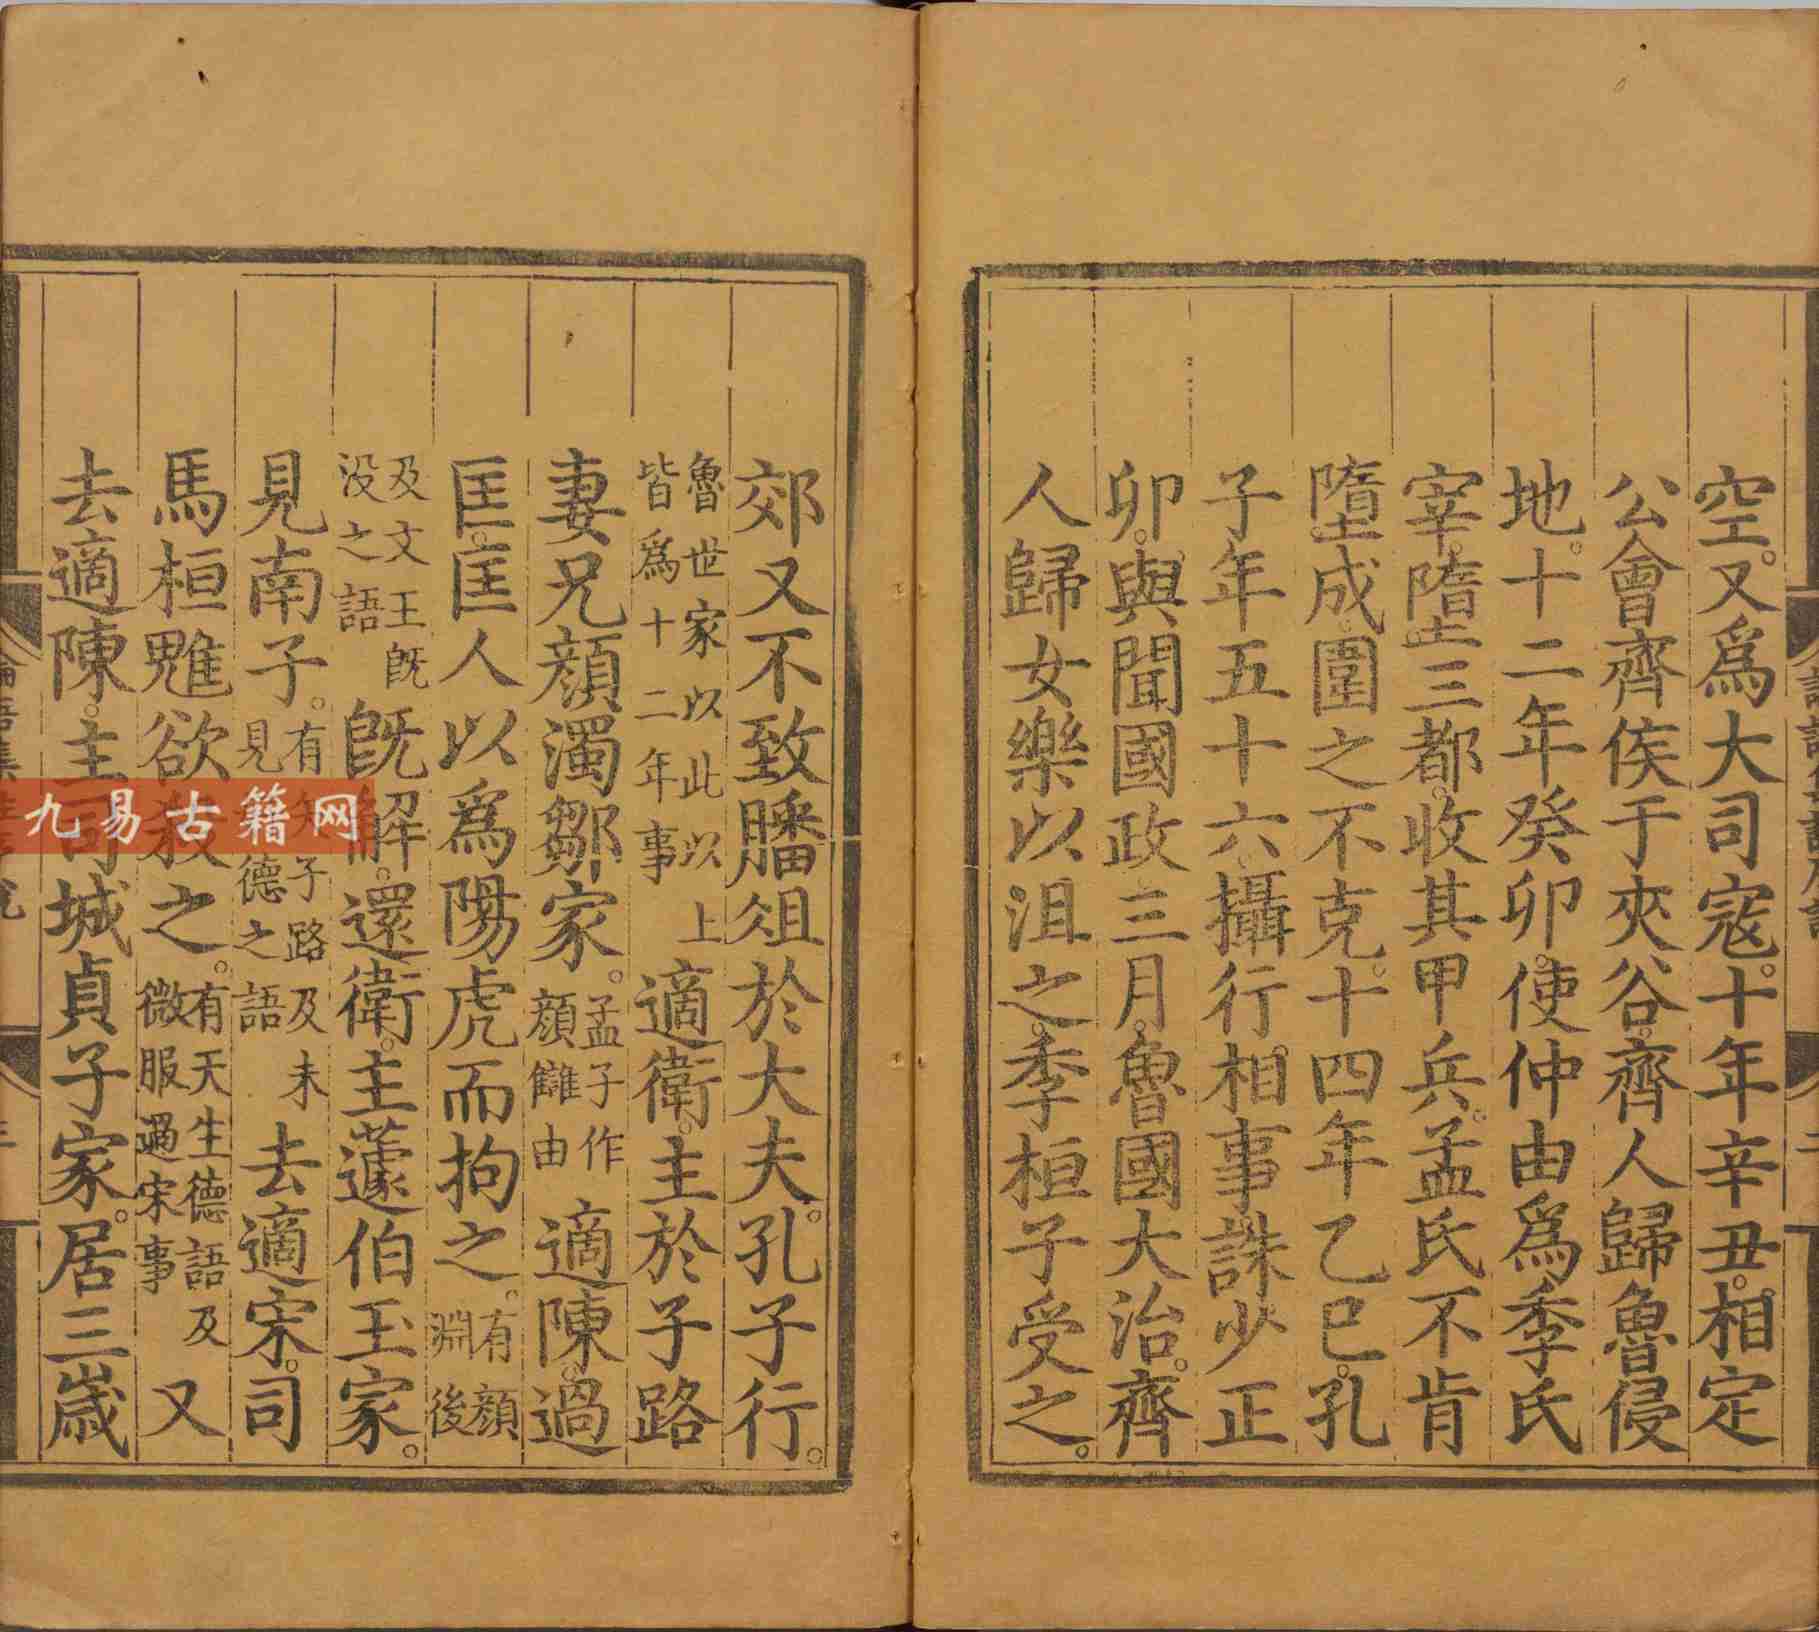 空。又爲大司寇。十年辛丑。相定
公會齊侯于夾谷。齊人歸魯侵
地。十二年癸卯。使仲由爲季氏
宰。墮三都。收其甲兵。孟氏不肯
墮成。圍之不克。十四年乙巳。孔
子年五十六。攝行相事。誅少正
卯。與聞國政。三月。魯國大治。齊
人歸女樂以沮之。季桓子受之。
郊又不致膰俎於大夫。孔子行。
魯世家以此以上
皆爲十二年事
適衛。主於子路
妻兄顏濁鄒家。
孟子作
顏讎由
適陳。過
匡。匡人以爲陽虎而拘之。
有顏
淵後
及文王旣
没之語
旣解。還衛。主蘧伯玉家。
見南子。
有矢子路及未
見好德之語
去適宋。司
馬桓魋欲殺之。
有天生德語及
微服過宋事
又
去適陳。主司城貞子家。居三歲
九易古籍网